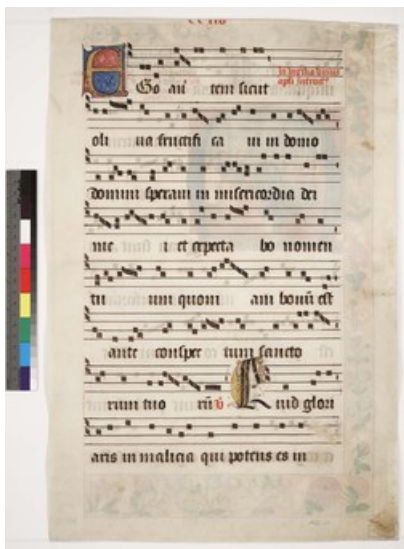 Ego autem sicut
oliva fructifica vi in domo
domini speravi in misericordia dei
me i et expecta bo nomen
tu um quoni am bonū est
ante conspec tum sancto
rum tuo rū v Quid glori
aris in malicia qui potens es in